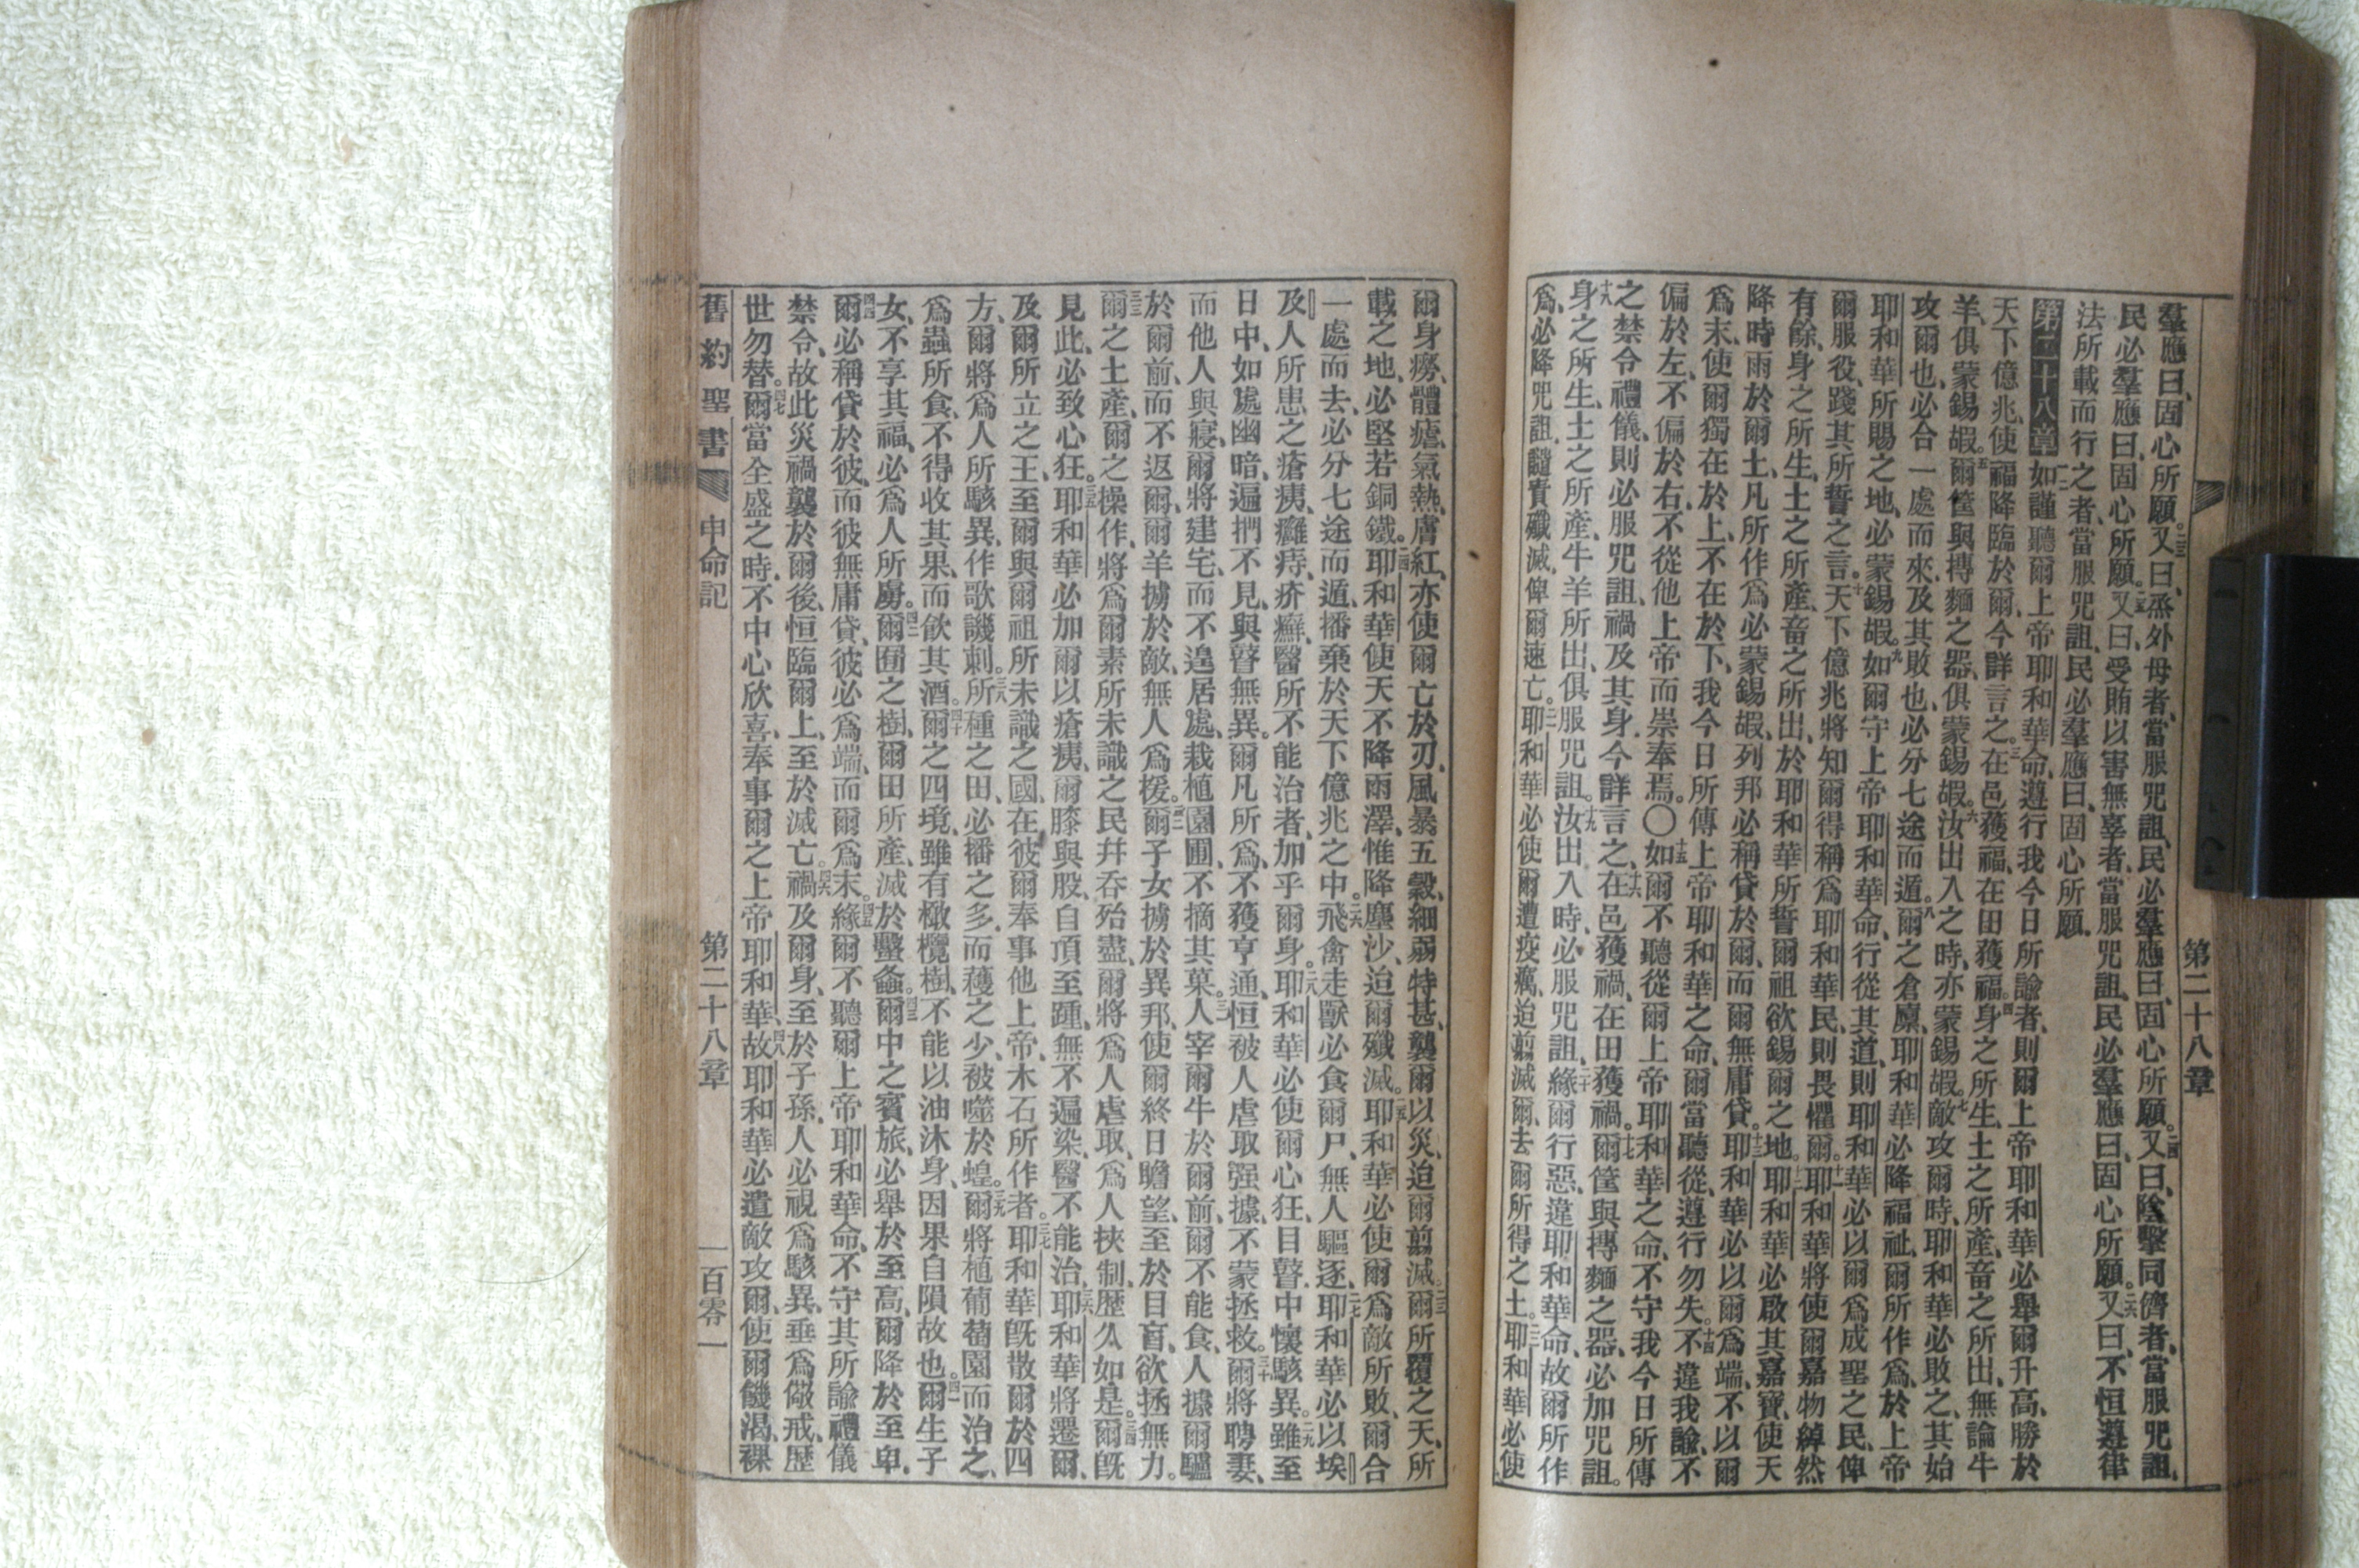 羣應曰、固心所願。二三又曰、烝外母者、當服咒詛、民必羣應曰、固心所願。二四又曰、陰擊同儕者、當服咒詛、
民必羣應曰、固心所願。二五又曰、受賄以害無辜者、當服咒詛、民必羣應曰、固心所願。二六又曰、不恒遵律
法所載而行之者、當服咒詛、民必羣應曰、固心所願。
第二十八章 一二如謹聽爾上帝耶和華命、遵行我今日所諭者、則爾上帝耶和華必舉爾升高、勝於
天下億兆、使福降臨於爾、今詳言之。三在邑獲福、在田獲福。四身之所生、土之所產、畜之所出、無論牛
羊、俱蒙錫嘏。五爾筐與摶麵之器、俱蒙錫嘏。六汝出入之時、亦蒙錫嘏。七敵攻爾時、耶和華必敗之、其始
攻爾也、必合一處而來、及其敗也、必分七途而遁。八爾之倉廩、耶和華必降福祉、爾所作爲、於上帝
耶和華所賜之地、必蒙錫嘏。九如爾守上帝耶和華命、行從其道、則耶和華必以爾爲成聖之民、俾
爾服役、踐其所誓之言。十天下億兆將知爾得稱爲耶和華民、則畏懼爾。十一耶和華將使爾嘉物綽然
有餘、身之所生、土之所產、畜之所出、於耶和華所誓爾祖欲錫爾之地。十二耶和華必啟其嘉寶、使天
降時雨於爾土、凡所作爲、必蒙錫嘏、列邦必稱貸於爾、而爾無庸貸。十三耶和華必以爾爲端、不以爾
爲末、使爾獨在於上、不在於下、我今日所傳上帝耶和華之命、爾當聽從、遵行勿失。十四不違我諭、不
偏於左、不偏於右、不從他上帝而崇奉焉。〇十五如爾不聽從爾上帝耶和華之命、不守我今日所傳
之禁令禮儀、則必服咒詛、禍及其身、今詳言之、十六在邑獲禍、在田獲禍。十七爾筐與摶麵之器、必加咒詛。
十八身之所生、土之所產、牛羊所出、俱服咒詛。十九汝出入時、必服咒詛、二十緣爾行惡、違耶和華命、故爾所作
爲、必降咒詛、譴責殲滅、俾爾速亡。二一耶和華必使爾遭疫癘、迨翦滅爾、去爾所得之土。二二耶和華必使
爾身癆、體瘧、氣熱、膚紅、亦使爾亡於刃、風暴五穀、細弱特甚、襲爾以災、迨爾翦滅。二三爾所覆之天、所
載之地、必堅若銅鐵。二四耶和華使天不降雨澤、惟降塵沙、迨爾殲滅。二五耶和華必使爾爲敵所敗、爾合
一處而去、必分七途而遁、播棄於天下億兆之中。二六飛禽走獸必食爾尸、無人驅逐。二七耶和華必以埃
及人所患之瘡痍、癰痔、疥癬、醫所不能治者、加乎爾身。二八耶和華必使爾心狂、目瞽、中懷駭異。二九雖至
日中、如處幽暗、遍捫不見、與瞽無異。爾凡所爲、不獲亨通、恒被人虐取强據、不蒙拯救。三十爾將聘妻、
而他人與寢、爾將建宅、而不遑居處、栽植園圃、不摘其菓。三一人宰爾牛於爾前、爾不能食、人據爾驢
於爾前、而不返爾、爾羊擄於敵、無人爲援。三二爾子女擄於異邦、使爾終日瞻望、至於目盲、欲拯無力。
三三爾之土產、爾之操作、將爲爾素所未識之民幷吞殆盡、爾將爲人虐取、爲人挾制、歷久如是。三四爾旣
見此、必致心狂。三五耶和華必加爾以瘡痍、爾膝與股、自頂至踵、無不遍染、醫不能治、三六耶和華將遷爾、
及爾所立之王、至爾與爾祖所未識之國、在彼爾奉事他上帝、木石所作者。三七耶和華旣散爾於四
方、爾將爲人所駭異、作歌譏刺。三八所種之田、必播之多、而穫之少、被噬於蝗。三九爾將植葡萄園而治之、
爲蟲所食、不得收其果、而飲其酒。四十爾之四境、雖有橄欖樹、不能以油沐身、因果自隕故也。四一爾生子
女、不享其福、必爲人所虜。四二爾囿之樹、爾田所產、滅於螽螽。四三爾中之賓旅、必舉於至高、爾降於至卑、
四四爾必稱貸於彼、而彼無庸貸、彼必爲端、而爾爲末。四五緣爾不聽爾上帝耶和華命、不守其所諭禮儀
禁令、故此災禍襲於爾後、恒臨爾上、至於滅亡。四六禍及爾身、至於子孫、人必視爲駭異、垂爲儆戒、歷
世勿替。四七爾當全盛之時、不中心欣喜、奉事爾之上帝耶和華、四八故耶和華必遣敵攻爾、使爾饑渴、裸
舊約聖書 申命記 第二十八章 一百零一
第二十八章